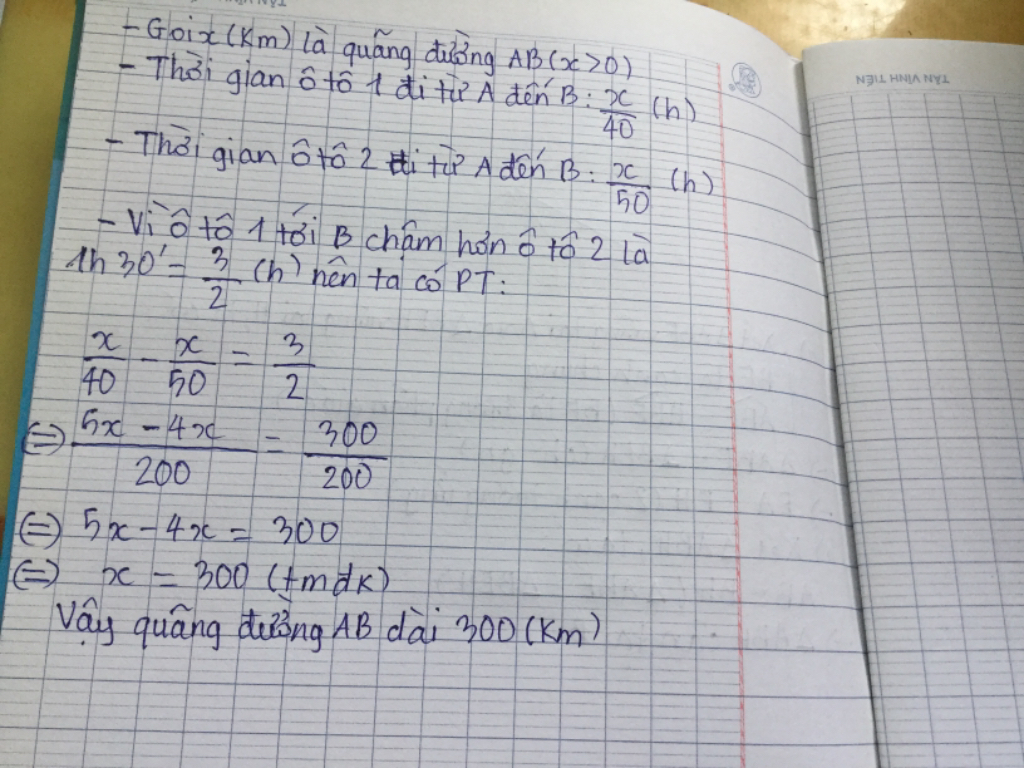 - Gọi x (Km) là quãng đường AB (x > 0)
- Thời gian ô tô 1 đi từ A đến B: x/40 (h)
- Thời gian ô tô 2 đi từ A đến B: x/50 (h)
- Vì ô tô 1 tới B chậm hơn ô tô 2 là
1h 30' = 3/2 (h) nên ta có PT:
x/40 - x/50 = 3/2
⇔ (5x - 4x)/200 = 300/200
⇔ 5x - 4x = 300
⇔ x = 300 (tmđk)
Vậy quãng đường AB dài 300 (Km)
TÂN VĨNH TIẾN